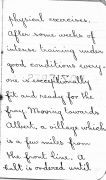 physical exercises.
After some weeks of
intense training under
good conditions every-
one is exceptionally
fit and ready for the
fray. Moving towards
Albert, a village which
is a few miles from
the front line. A
halt is ordered until